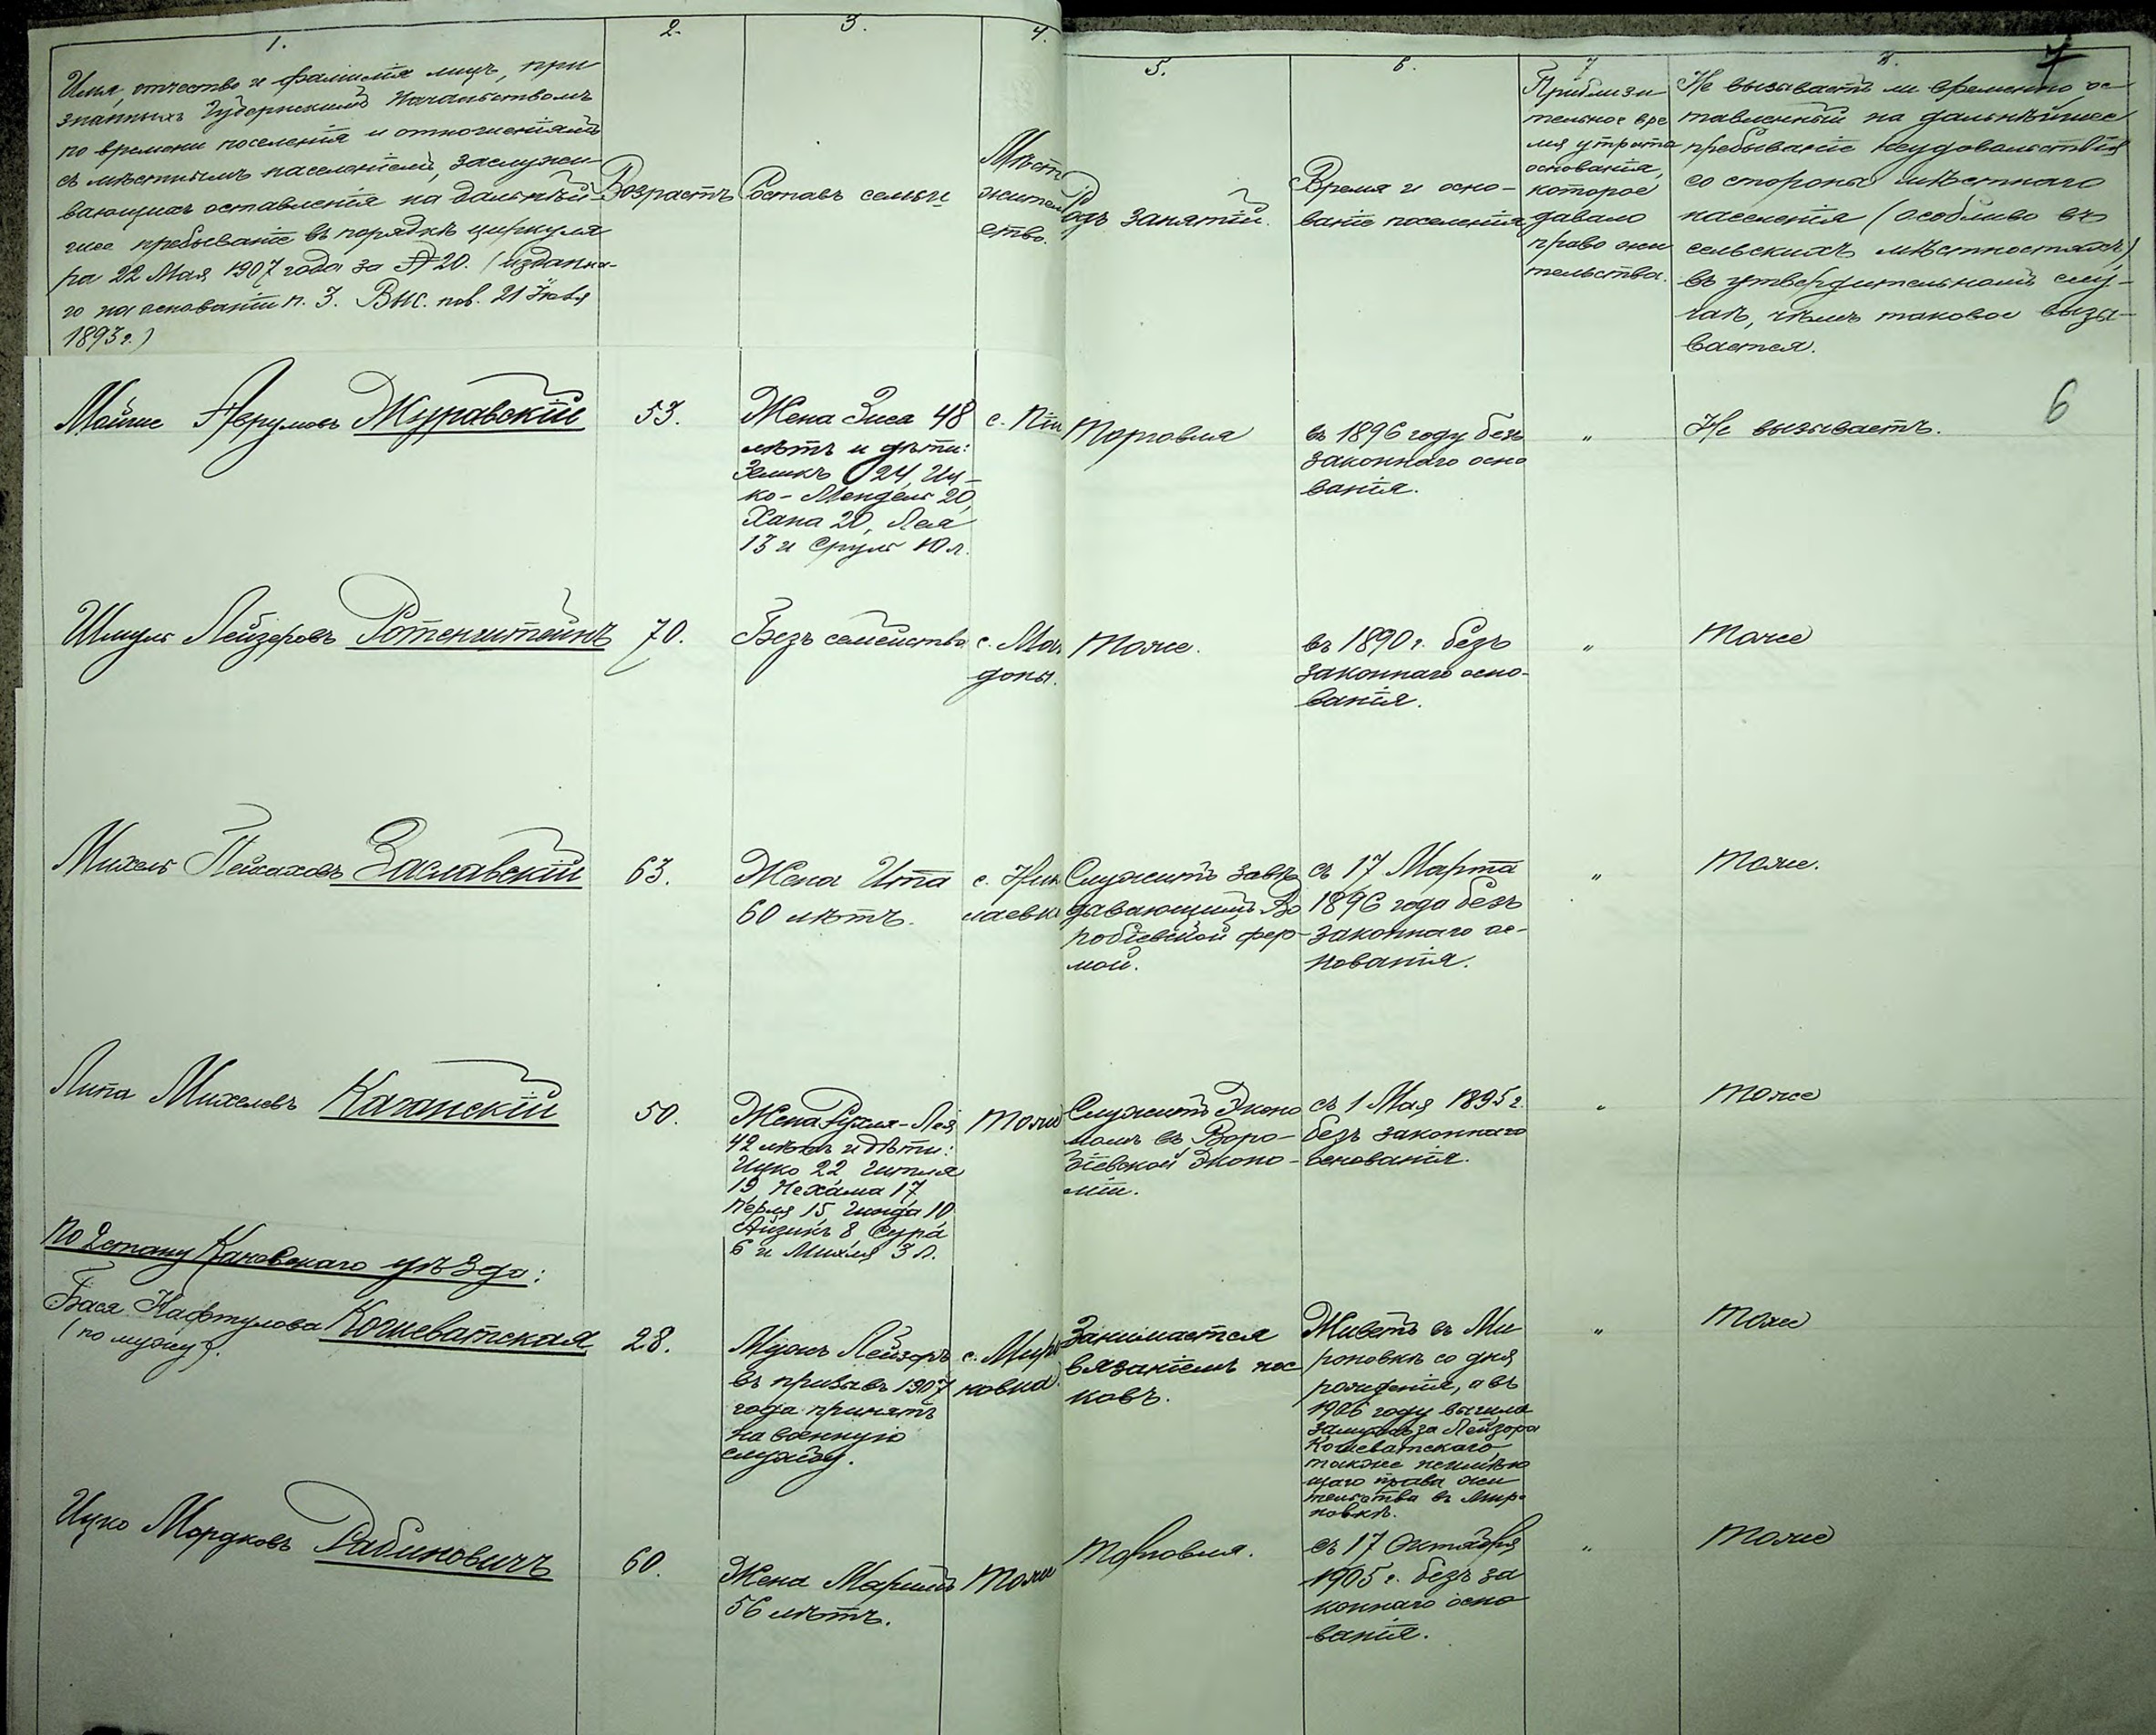 1.
Имя, отчество и фамилія лицъ, при
знанныхъ Губернскимъ Начальствомъ
по времени поселенія и отношеніямъ
съ мѣстнымъ населеніемъ, заслужи-
вающихъ оставленія на дальнѣй-
шее пребываніе въ порядкѣ циркуля
ра 22 Мая 1907 года за № 20. (изданна-
го на основаніи п. 3. Выс. пов. 21 Іюля
1893 г.)
2.
Возрастъ
3.
Составъ семьи
4.
Мѣсто
жительство.
5.
Родъ занятій.
6.
Время и осно-
ваніе поселенія
7
Приблизи
тельное вре
мя утраты
основанія,
которое
давало
право жи
тельства.
8.
Не вызываетъ ли временно ос
тавленный на дальнѣйшее
пребываніе неудовольствія
со стороны мѣстнаго
населенія (особливо въ
сельскихъ мѣстностяхъ)
въ утвердительномъ слу-
чаѣ, чѣмъ таковое вызы-
вается.
7
6
Мойше Аврумовъ Журавскій
53.
Жена Зиса 48
лѣтъ и дѣти:
Зеликъ 24, Иц-
ко-Мендель 20,
Хана 20, Лея
13 и Сруль 10 л.
с.
Торговля
въ 1896 году безъ
законнаго осно
ванія.
"
Не вызываетъ.
Шмуль Лейзеровъ Ротенштейнъ
70.
Безъ семейства
с.
доны.
Тоже.
въ 1890 г. безъ
законнаго осно-
ванія.
"
Тоже
Михель Пейсаховъ Заславскій
63.
Жена Ита
60 лѣтъ.
с.
лаевка
Служитъ завѣ
дывающимъ Во
робіевской фер-
мой.
съ 17 Марта
1896 года безъ
законнаго ос-
нованія.
"
Тоже.
Липа Михелевъ Каганскій
50.
Жена Рухля-Лея
42 лѣтъ и дѣти:
Ицко 22 Гитля
19 Нехама 17
Перля 15 10
Айзикъ 8 Сура
6 и Михля 3 л.
Тоже
Служитъ Эконо
момъ въ Воро-
біевской Эконо-
міи.
съ 1 Мая 1895 г.
безъ законнаго
основанія.
"
Тоже
По 2 стану Каневскаго уѣзда:
Бася Нафтулова Кошеватская
(по мужу).
28.
Мужъ Лейзоръ
въ призывъ 1907
года принятъ
на военную
службу.
с. Миро
новка.
Занимается
вязаніемъ нос
ковъ.
Живетъ въ Ми
роновкѣ со дня
рожденія, а въ
1906 году вышла
замужъ за Лейзора
Кошеватскаго,
также неимѣю
щаго права жи
тельства въ Миро
новкѣ.
"
Тоже
Ицко Мордковъ Рабиновичъ
60.
Жена
56 лѣтъ.
Тоже
Торговля.
съ 17 Октября
1905 г. безъ за
коннаго осно
ванія.
"
Тоже